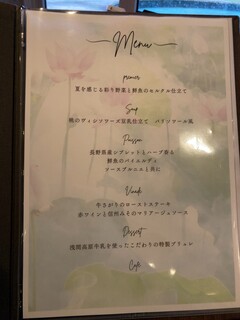 Menu
premier
夏を感じる彩り野菜と鮮魚のモルタル仕立て
Soup
桃のヴィシソワーズ豆乳仕立て パドソマール風
Poisson
長野県産シブレットとハーブ香る
鮮魚のパイエルディ
ソースブルニエと共に
Viande
牛さがりのローストステーキ
赤ワインと信州みそのマリアージュソース
Dessert
浅間高原牛乳を使ったこだわりの特製ブリュレ
Café